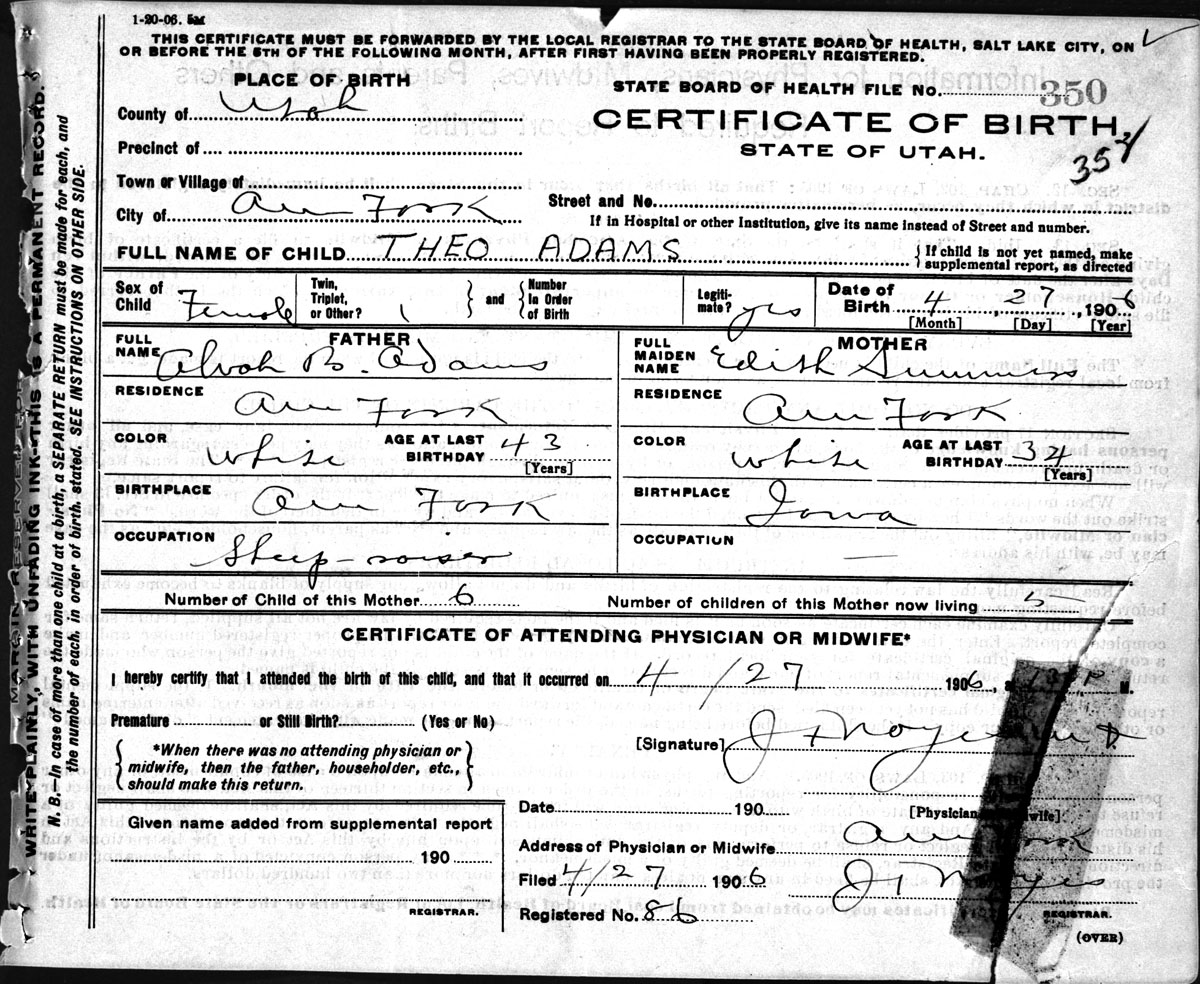 1-20-06. 5M
THIS CERTIFICATE MUST BE FORWARDED BY THE LOCAL REGISTRAR TO THE STATE BOARD OF HEALTH, SALT LAKE CITY, ON
OR BEFORE THE 5TH OF THE FOLLOWING MONTH, AFTER FIRST HAVING BEEN PROPERLY REGISTERED.
PLACE OF BIRTH
County of Utah
Precinct of
Town or Village of
City of Am Fork
STATE BOARD OF HEALTH FILE NO. 350
CERTIFICATE OF BIRTH.
STATE OF UTAH.
352
Street and No.
If in Hospital or other Institution, give its name instead of Street and number.
FULL NAME OF CHILD THEO ADAMS { If child is not yet named, make supplemental report, as directed
Sex of Child Female
Twin, Triplet, or Other? 1 } and { Number in Order of Birth
Legiti-mate? yes
Date of Birth 4 27, 1906
[Month] [Day] [Year]
FATHER
FULL NAME Alvah B. Adams
RESIDENCE Am Fork
COLOR white AGE AT LAST BIRTHDAY 43
[Years]
BIRTHPLACE Am Fork
OCCUPATION Sheep-raiser
MOTHER
FULL MAIDEN NAME Edith Summers
RESIDENCE Am Fork
COLOR white AGE AT LAST BIRTHDAY 34
[Years]
BIRTHPLACE Iowa
OCCUPATION —
Number of Child of this Mother 6 Number of children of this Mother now living 3
CERTIFICATE OF ATTENDING PHYSICIAN OR MIDWIFE*
I hereby certify that I attended the birth of this child, and that it occurred on 4/27 1906, M.
Premature or Still Birth? (Yes or No)
{ *When there was no attending physician or midwife, then the father, householder, etc., should make this return. }
[Signature] J F Noyes
[Physician Midwife]
Given name added from supplemental report
190
REGISTRAR.
Date 190
Address of Physician or Midwife
Filed 4/27 1906 J Noyes
Registered No. 86 REGISTRAR.
(OVER)
MARGIN RESERVED FOR
WRITE PLAINLY, WITH UNFADING INK—THIS IS A PERMANENT RECORD.
N. B. In case of more than one child at a birth, a SEPARATE RETURN must be made for each, and
the number of each, in order of birth, stated. SEE INSTRUCTIONS ON OTHER SIDE.